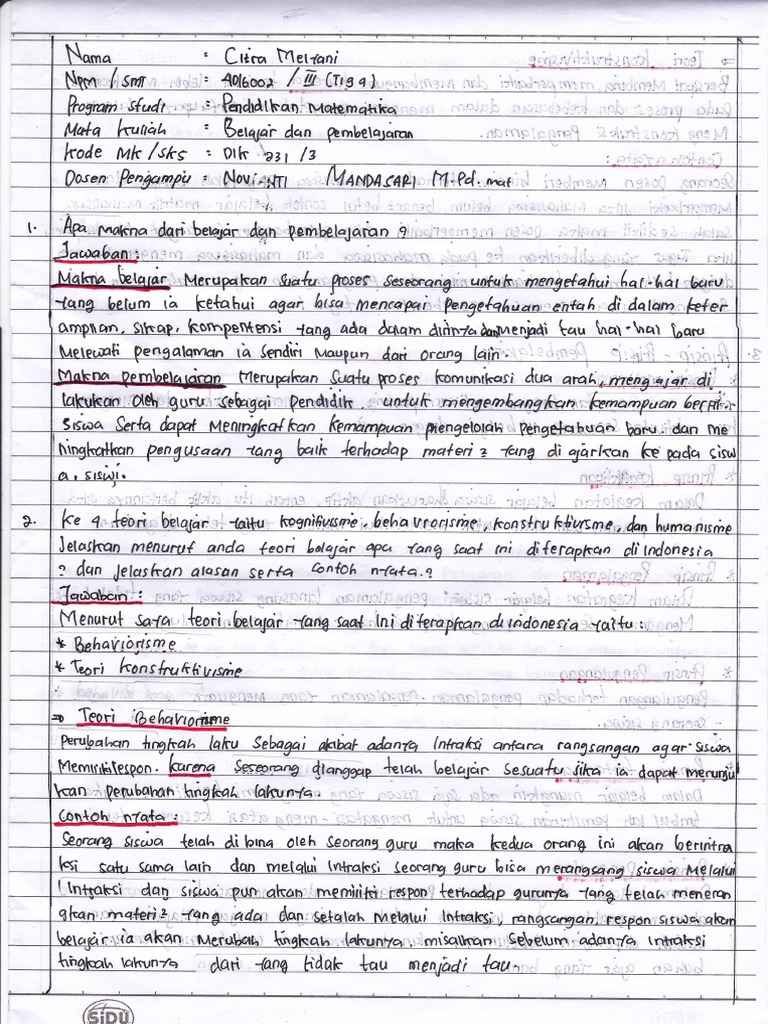 Nama : Citra Meliani
Npm / Smt : 4016002 / III (Tiga)
Program Studi : Pendidikan Matematika
Mata Kuliah : Belajar dan pembelajaran
Kode Mk/Sks : DIK 231 /3
Dosen Pengampu : Novi-NTI MANDASARI M.Pd.mat
1. Apa makna dari belajar dan Pembelajaran ?
Jawaban :
Makna belajar Merupakan Suatu proses seseorang untuk mengetahui hal-hal baru
yang belum ia ketahui agar bisa mencapai pengetahuan entah di dalam keter
ampilan, sikap, kompetensi yang ada dalam dirinya dan Menjadi tau hal-hal baru
Melewati pengalaman ia Sendiri Maupun dari orang lain.
Makna pembelajaran Merupakan Suatu proses komunikasi dua arah, mengajar di
lakukan oleh guru sebagai Pendidik untuk mengembangkan kemampuan berpikir
siswa Serta dapat Meningkatkan Kemampuan mengelolah Pengetahuan baru. dan me
ningkatkan pengusaan yang baik terhadap materi2 yang di ajarkan ke pada sisw
a, siswi.
2. Ke 4 teori belajar yaitu kognitivisme, behaviorisme, konstruktivsme, dan humanisme
Jelaskan menurut anda teori belajar apa yang saat ini diterapkan di Indonesia
? dan Jelaskan alasan serta Contoh nyata.?
Jawaban :
Menurut saya teori belajar yang saat ini diterapkan di indonesia yaitu :
* Behaviorisme
* Teori Konstruktivisme
⇒ Teori Behaviorisme
Perubahan tingkah laku Sebagai akibat adanya Intraksi antara rangsangan agar siswa
Memiliki respon. karena Seseorang dianggap telah belajar Sesuatu Jika ia dapat menunju
kan perubahan tingkah lakunya.
Contoh nyata :
Seorang siswa telah di bina oleh seorang guru maka kedua orang ini akan berintra
ksi satu sama lain dan melalui Intraksi seorang guru bisa merangsang siswa Melalui
Intraksi dan siswa pun akan memiliki respon terhadap gurunya yang telah meneran
gkan materi2 yang ada dan setalah Melalui Intraksi, rangsangan, respon siswa akan
belajar ia akan Merubah tingkah lakunya misalkan sebelum adanya intraksi
tingkah lakunya dari yang tidak tau menjadi tau.
SiDU